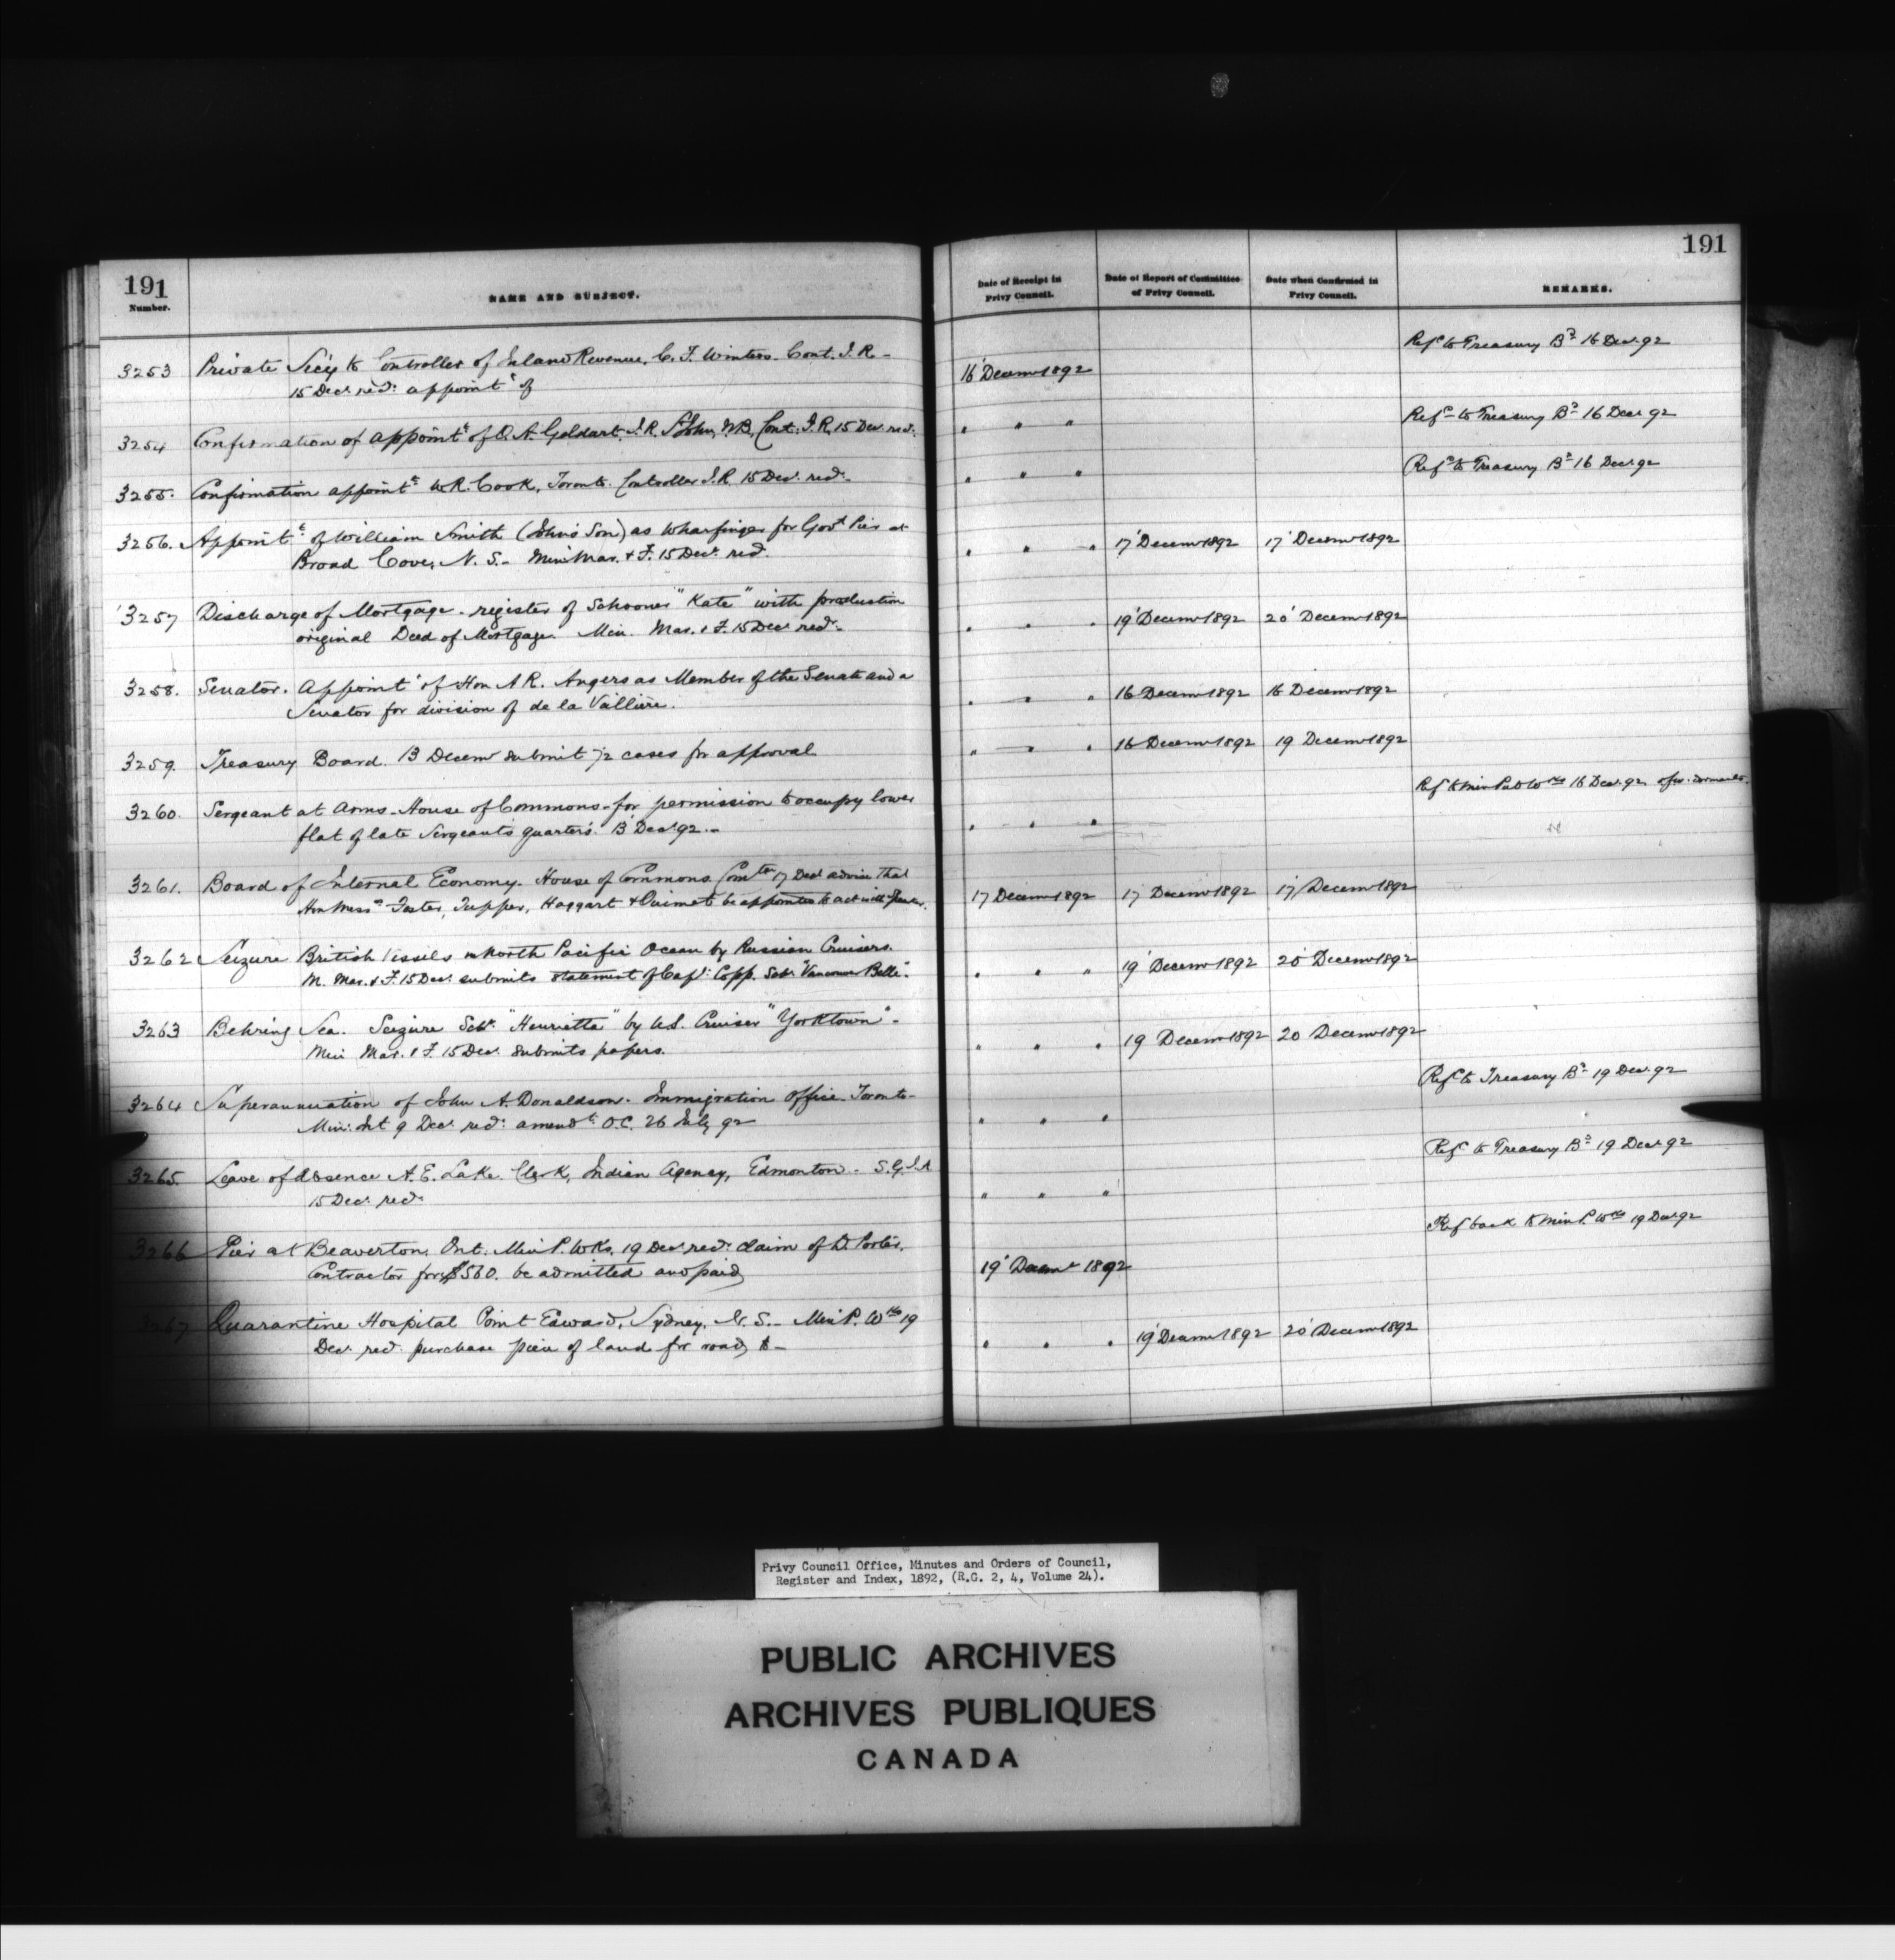 191
Number.
NAME AND SUBJECT.
Date of Receipt in Privy Council.
Date of Report of Committee of Privy Council.
Date when Confirmed in Privy Council.
REMARKS.
191
3253 Private Sec'y to Controller of Inland Revenue. C. F. Winters. Cont. I. R. -
15 Dec. recd. appointt of
16' Decemr 1892
Refd to Treasury Bd 16 Decr 92
3254 Confirmation of appointt of O. A. Geldart, I.R. St John, N.B. Cont. I.R. 15 Dec. recd.
" " "
Refd to Treasury Bd 16 Decr 92
3255. Confirmation appointt W. R. Cook, Toronto. Controller I.R. 15 Dec. recd.
" " "
Refd to Treasury Bd 16 Decr 92
3256. Appointt of William Smith (John's Son) as Wharfinger for Govt Pier at
Broad Cove, N. S. - Min Mar. & F. 15 Dec. recd.
" " " 17' Decemr 1892 17' Decemr 1892
3257 Discharge of Mortgage - register of Schooner "Kate" with production
original Deed of Mortgage. Min. Mar. & F. 15 Dec. recd.
" " " 19' Decemr 1892 20' Decemr 1892
3258. Senator. Appointt of Hon A. R. Angers as Member of the Senate and a
Senator for division of de la Vallière.
" " " 16 Decemr 1892 16 Decemr 1892
3259. Treasury Board. 13 Decemr submit 72 cases for approval
" " " 16 Decemr 1892 19 Decemr 1892
3260. Sergeant at Arms. House of Commons - for permission to occupy lower
flat of late Sergeant's quarters. 13 Dec. 92. -
" " "
Ref to Min Pub Wks 16 Decr 92
3261. Board of Internal Economy. House of Commons. Comtee 17 Decr advise that
Hon Messrs Foster, Tupper, Haggart & Ouimet be appointed to act with Speaker.
17 Decemr 1892 17 Decemr 1892 17 Decemr 1892
3262 Seizure British Vessels in North Pacific Ocean by Russian Cruisers.
M. Mar. & F. 15 Dec. submits statement of Capt. Copp. Schr "Vancouver Belle".
" " " 19' Decemr 1892 20 Decemr 1892
3263 Behring Sea. Seizure Schr. "Henrietta" by U.S. Cruiser "Yorktown" -
Min Mar. & F. 15 Dec. submits papers.
" " " 19 Decemr 1892 20 Decemr 1892
3264 Superannuation of John A. Donaldson. Immigration Office Toronto -
Min. Int 9 Dec. recd. amendt O.C. 26 July 92
" " "
Refd to Treasury Bd 19 Decr 92
3265. Leave of Absence A. E. Lake. Clerk, Indian Agency, Edmonton - S.G.I.A
15 Dec. recd.
" " "
Refd to Treasury Bd 19 Decr 92
3266 Pier at Beaverton, Ont. Min P. Wks. 19 Dec. recd. claim of D. Porter.
Contractor for $560. be admitted and paid
19' Decemr 1892
Ref back to Min P. Wks 19 Decr 92
3267 Quarantine Hospital Point Edward, Sydney, N. S. - Min P. Wks 19
Dec. recd. purchase piece of land for road to -
" " " 19' Decemr 1892 20' Decemr 1892
Privy Council Office, Minutes and Orders of Council,
Register and Index, 1892, (R.G. 2, 4, Volume 24).
PUBLIC ARCHIVES
ARCHIVES PUBLIQUES
CANADA